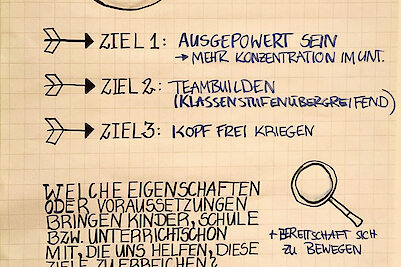 ZIEL 1: AUSGEPOWERT SEIN
→ MEHR KONZENTRATION IM UNT.
ZIEL 2: TEAMBUILDEN
(KLASSENSTUFENÜBERGREIFEND)
ZIEL 3: KOPF FREI KRIEGEN
WELCHE EIGENSCHAFTEN
ODER VORAUSSETZUNGEN
BRINGEN KINDER, SCHULE
BZW. UNTERRICHT SCHON
MIT, DIE UNS HELFEN, DIESE
ZIELE ZU ERREICHEN?
+ BEREITSCHAFT SICH
ZU BEWEGEN